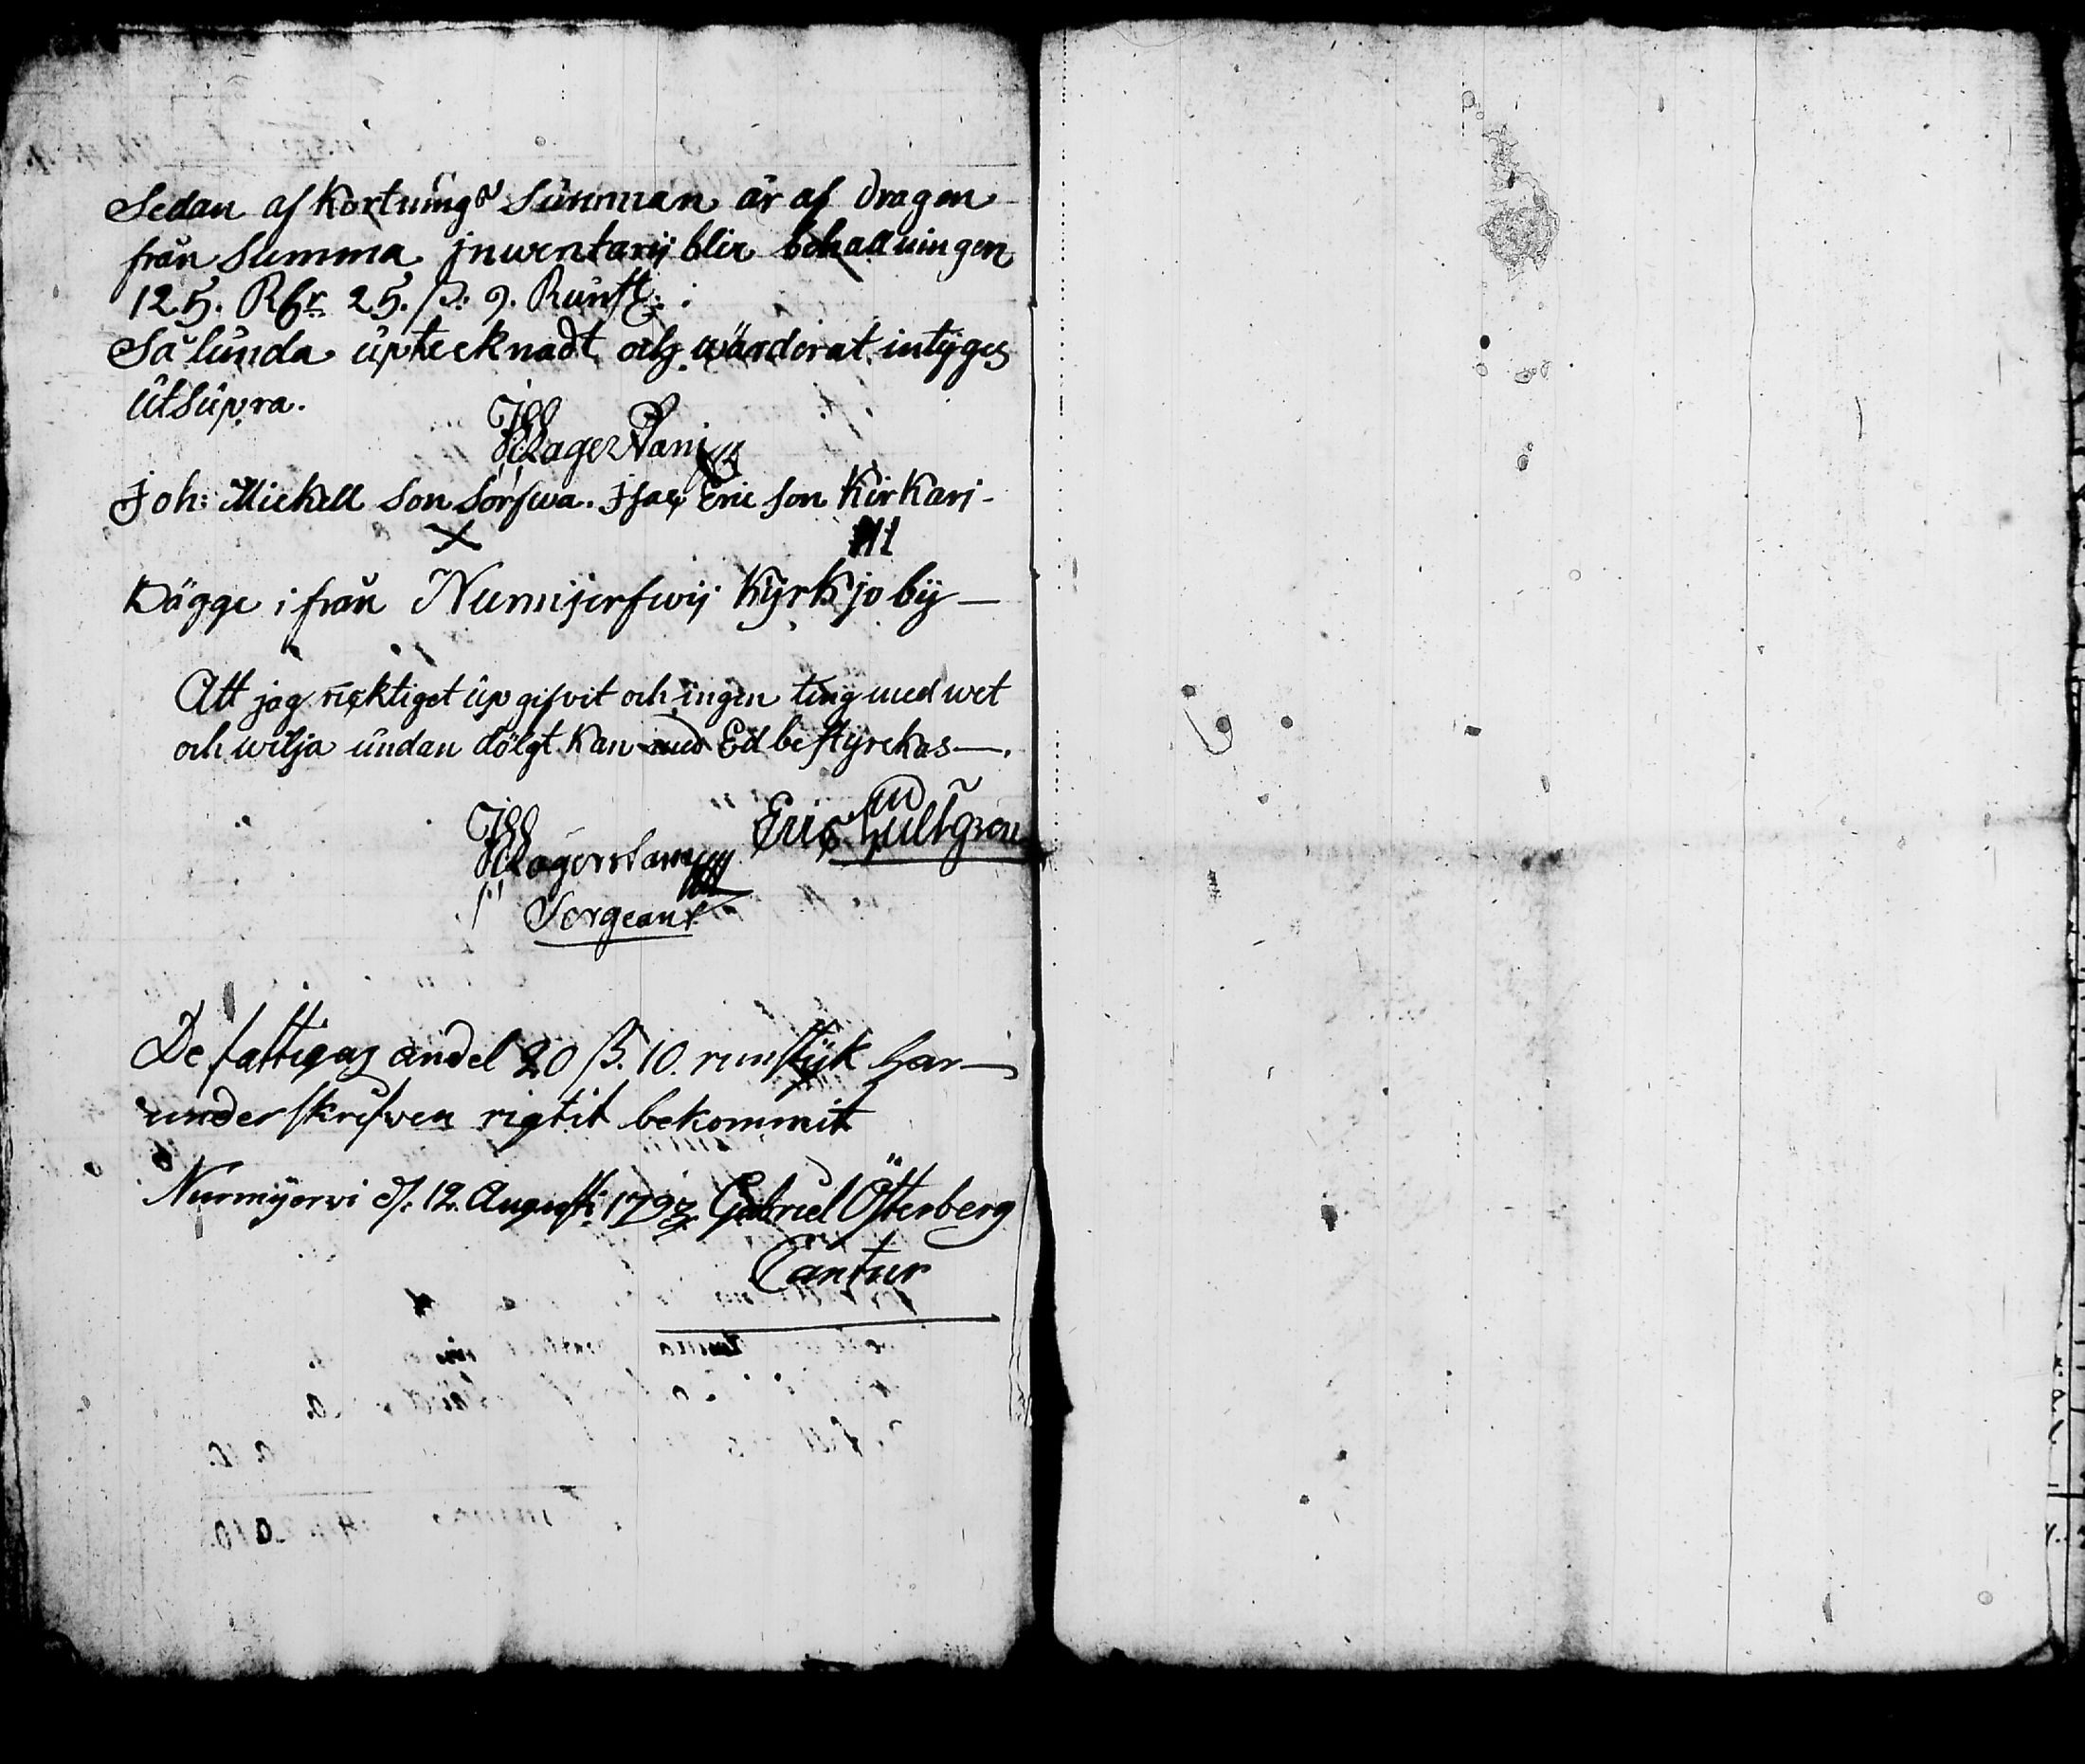 Sedan af Kortnings Summan är af dragen
från Summa jnwentarij blir behallningen
125. Rdr. 25. ß: 9. Runst:
Sålunda uptecknadt och wärderat intyges
Utsupra.
Joh: Mickell son Sorfwa. jsac Eric son KirKari-
X
III
Bägge i från Numijerfwij Kyrkjo by —
Att jag ricktiget up gifvit och ingen ting med wet
och wilja undan dölgt Kan med Ed bestyrckas —.
Eric Hultgren
Lagerstam
Sergeant
De fattigas andel 20 ß. 10. runstyk har
underskrifwen rigtit bekommit
Nurmijerwi d. 12. Augusti 1793. Gabriel Österberg
Cantur